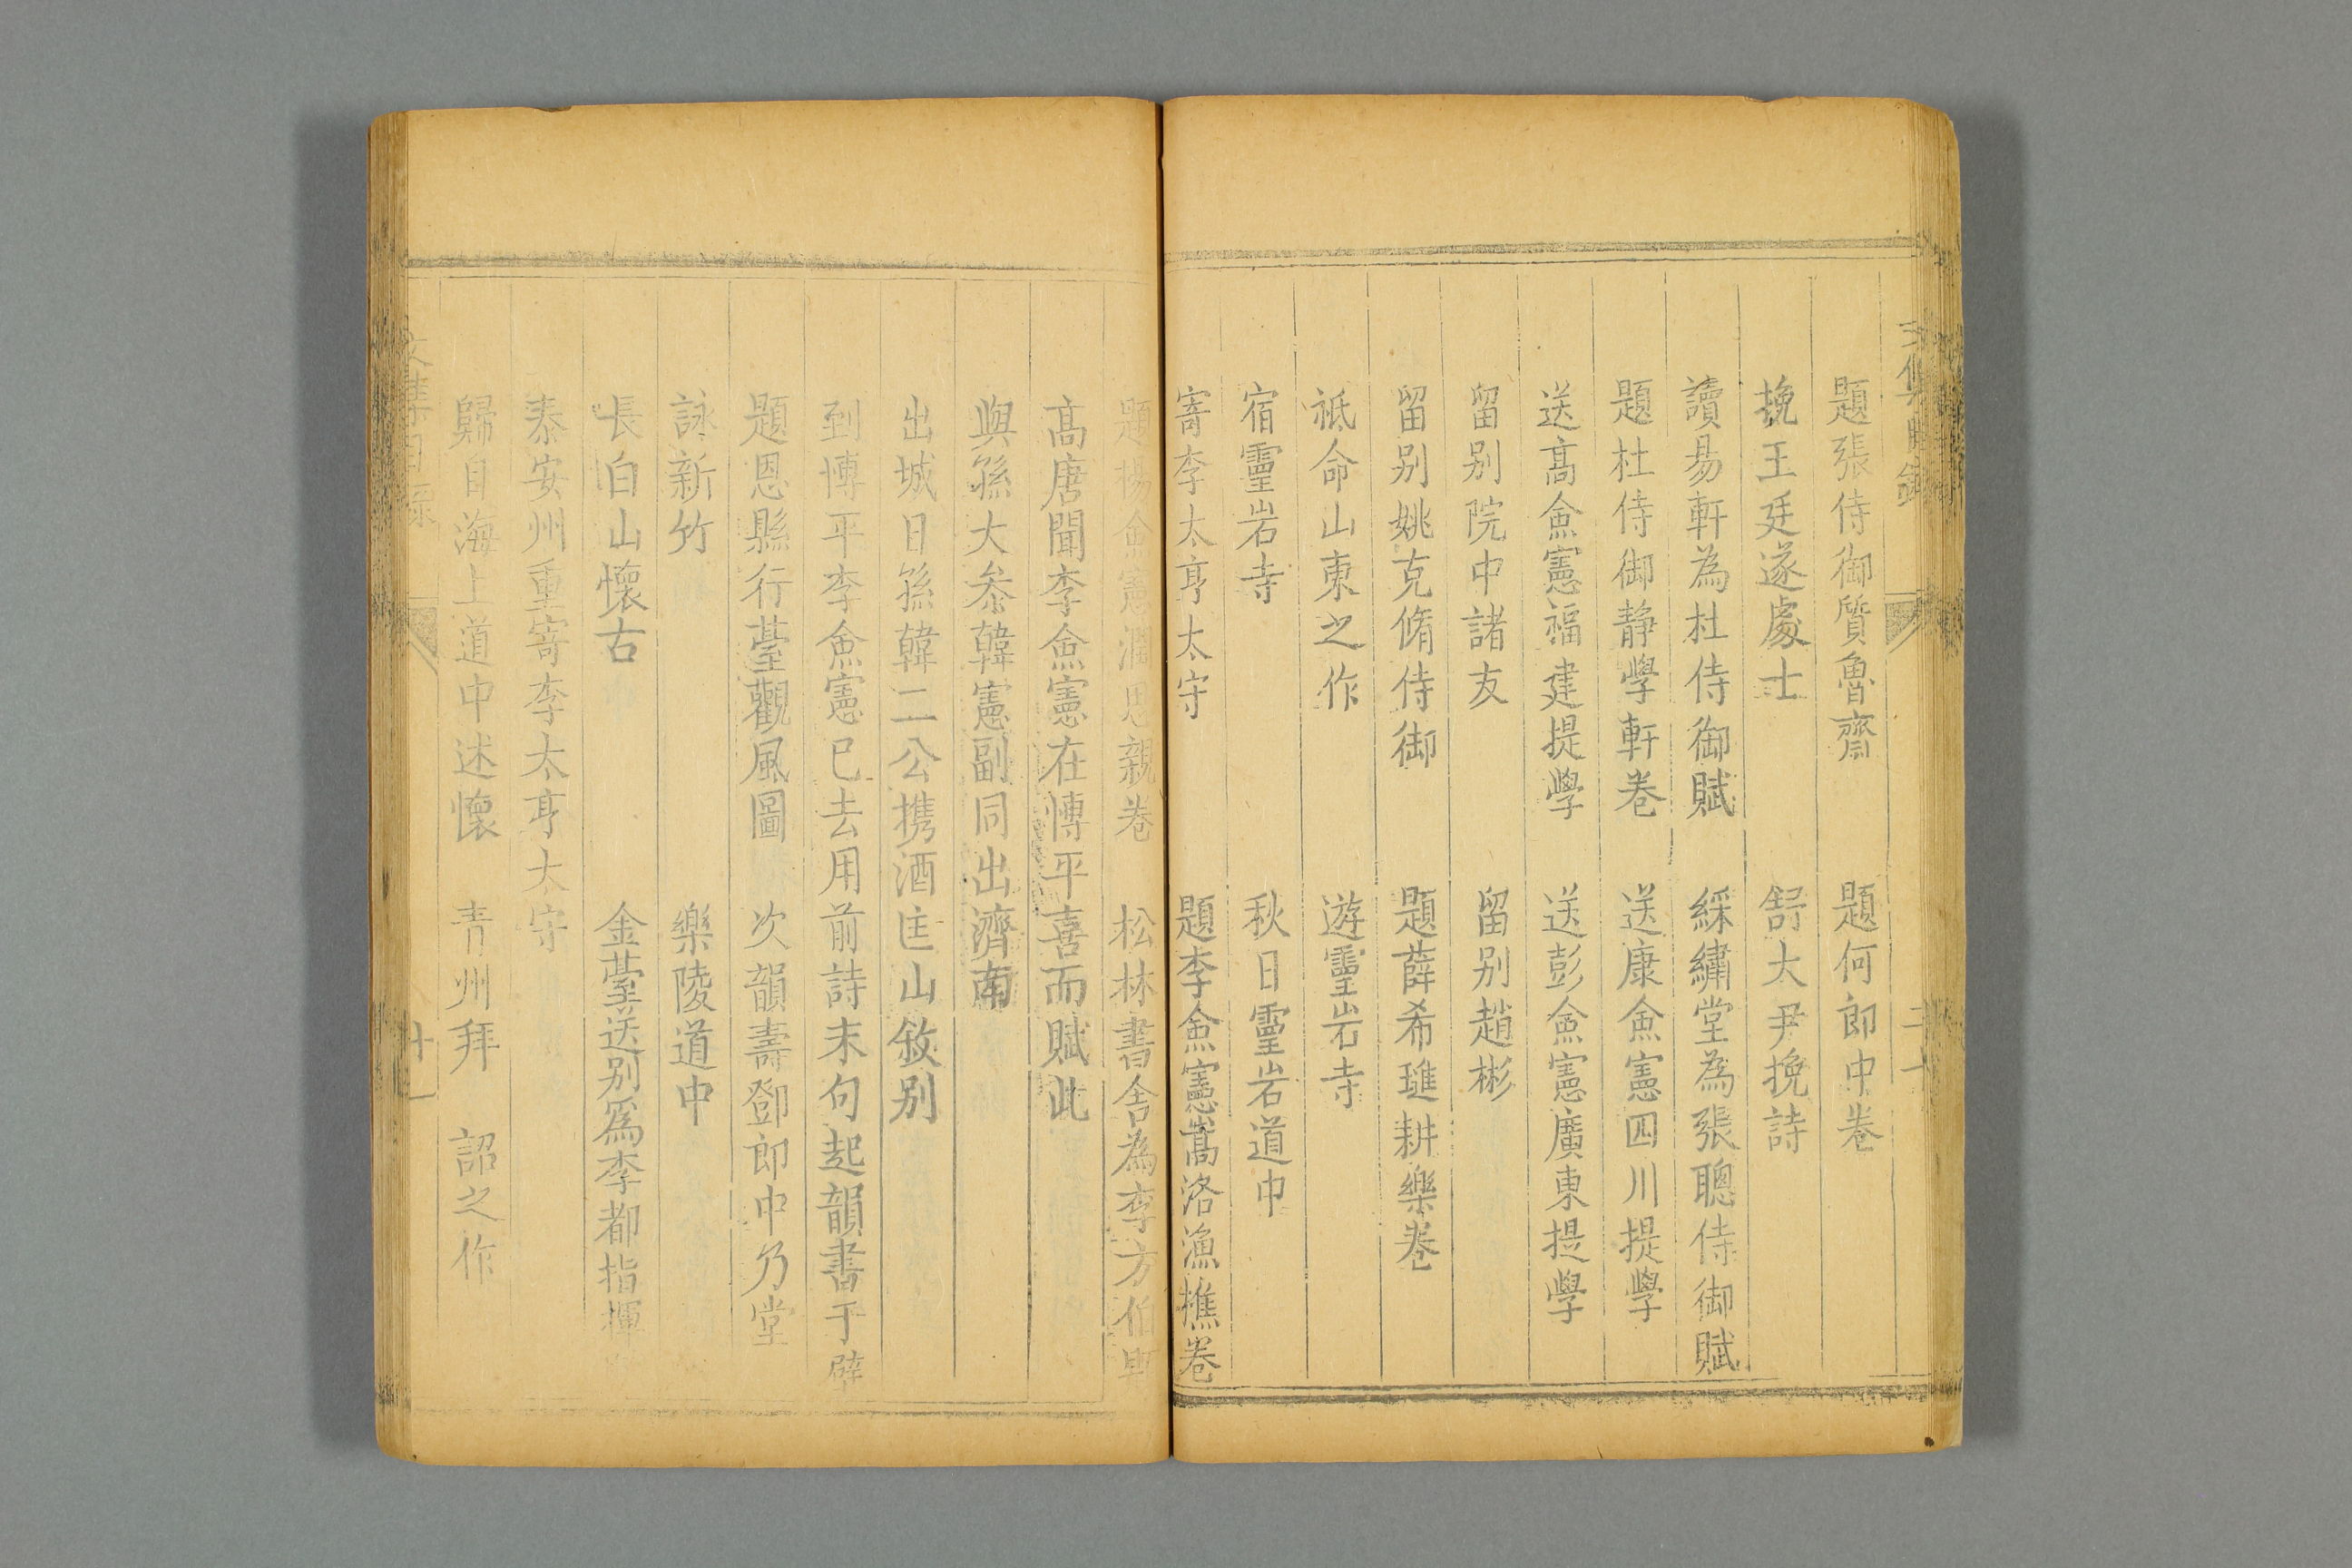 題張侍御質魯齋　題何郎中卷
挽王廷遂處士　舒大尹挽詩
讀易軒為杜侍御賦　綵繡堂為張聰侍御賦
題杜侍御静學軒卷　送康僉憲四川提學
送髙僉憲福建提學　送彭僉憲廣東提學
留别院中諸友　留别趙彬
留别姚克脩侍御　題薛希璡耕樂卷
祗命山東之作　遊靈岩寺
宿靈岩寺　秋日靈岩道中
寄李太亨太守　題李僉憲嵩洛漁樵卷
題楊僉憲潤思親卷　松林書舍為李方伯
髙唐聞李僉憲在博平喜而賦此
與孫大叅韓憲副同出濟南
出城日孫韓二公携酒匡山敘别
到博平李僉憲已去用前詩末句起韻書于壁
題恩縣行臺觀風圖　次韻壽鄧郎中乃堂
詠新竹　樂陵道中
長白山懷古　金臺送别爲李都指揮
泰安州重寄李太亨太守
歸自海上道中述懷　青州拜　詔之作
文集目録　廿一